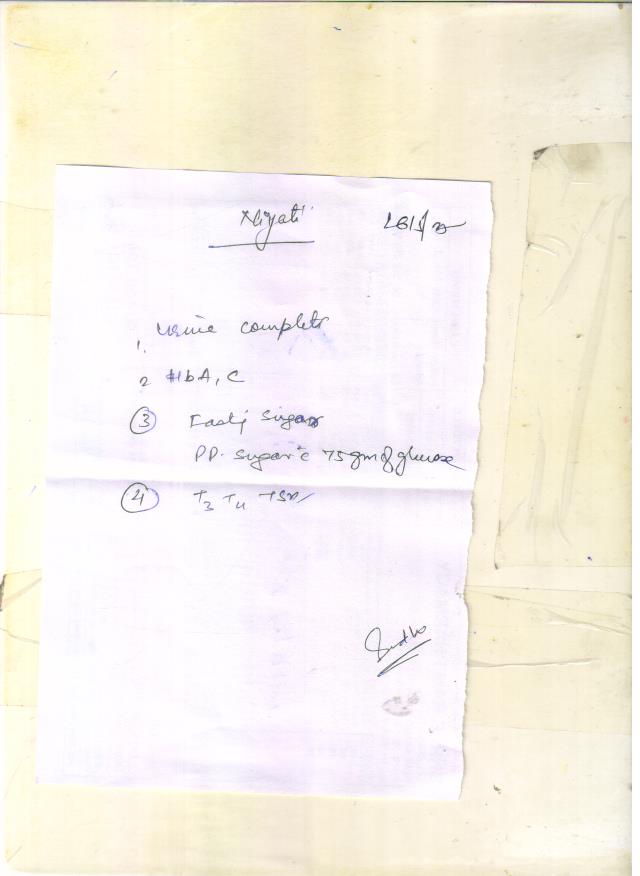 Niyati
1. Urine complete
2 HbA1C
3 Fastg Sugar
PP. Sugar c 75 gm of glucose
4 T3 T4 TSH